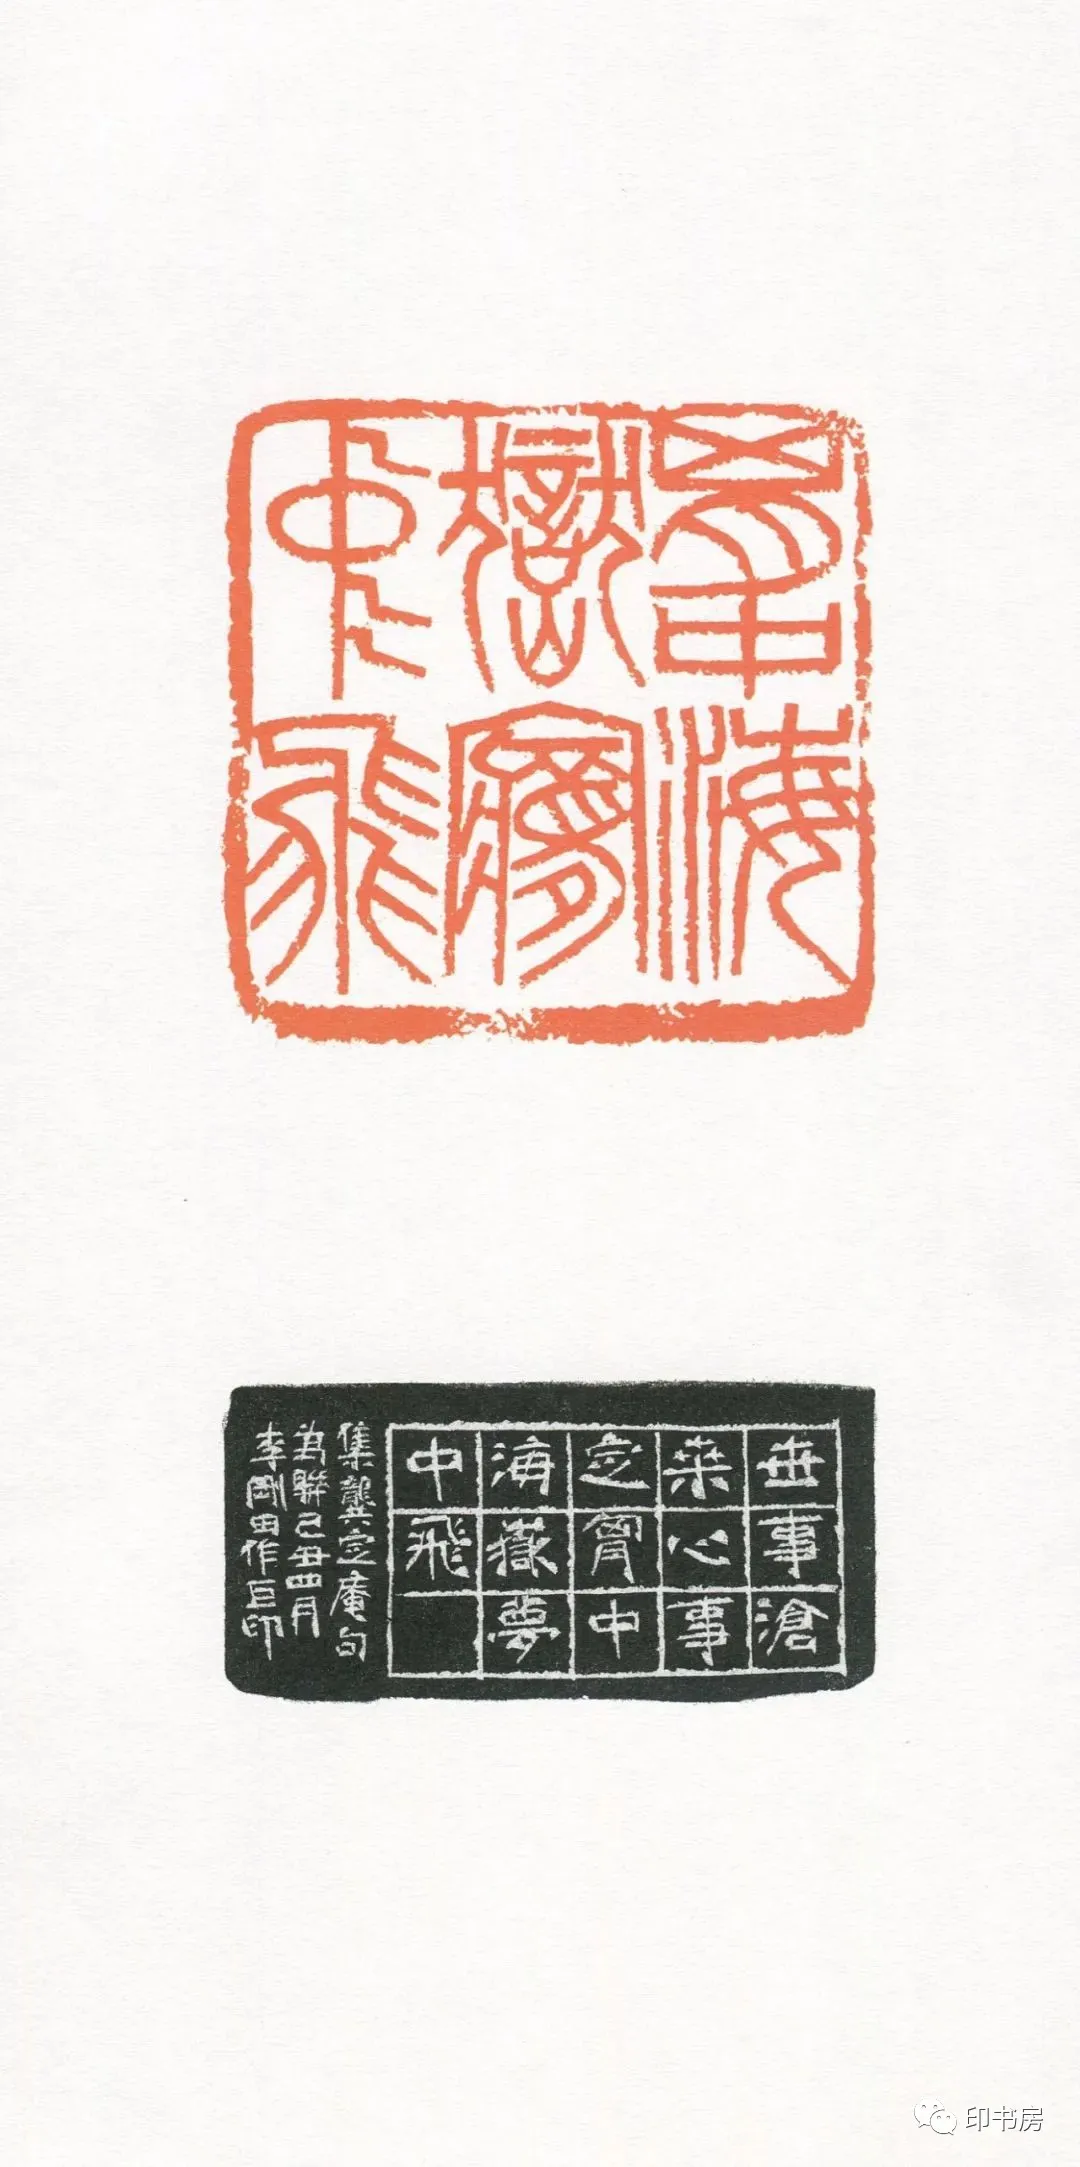 胷中海
嶽夢
中飛
世事滄
桒心事
定胷中
海嶽夢
中飛
集龔定庵句
為聯己丑四月
李剛田作巨印
印书房